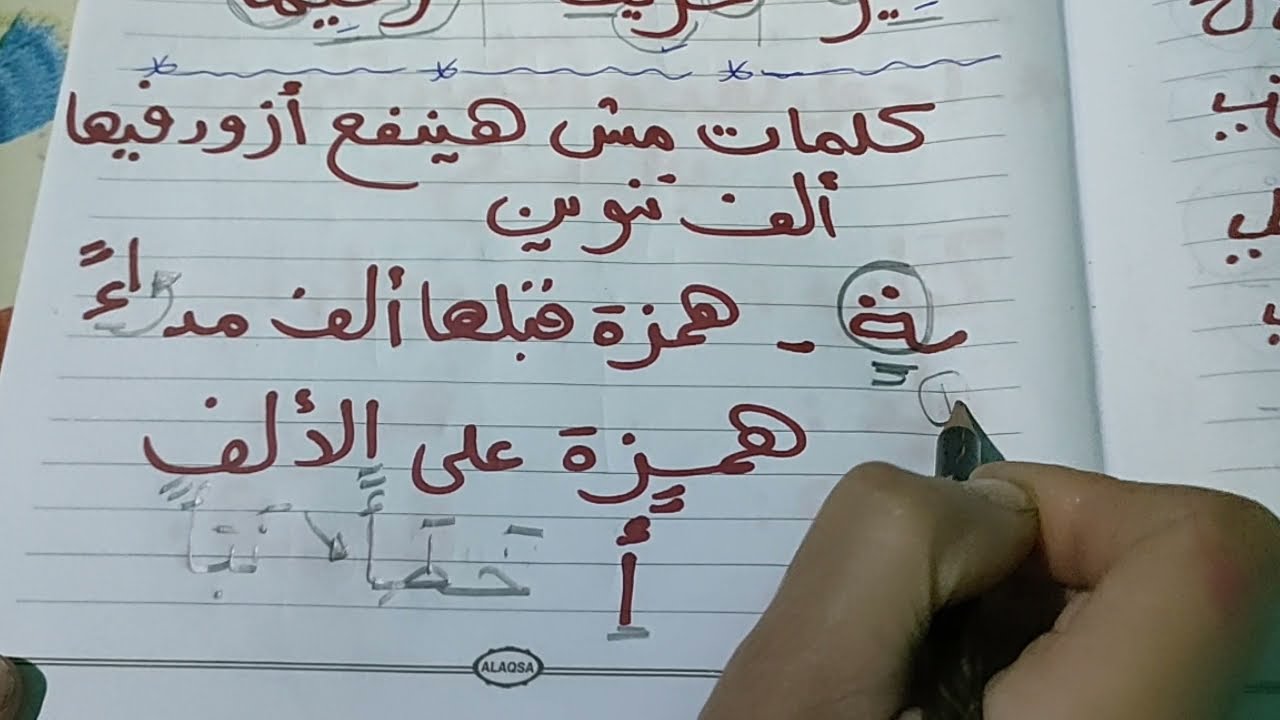 كلمات مش هينفع أزود فيها
ألف تنوين
ـة - همزة قبلها ألف مد اءً
همزة على الألف
أ
خَطَأً نَبَأً
ALAQSA